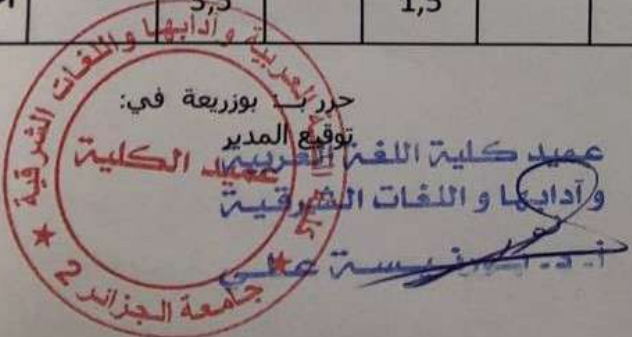 5,5 1,5
حرر بـ: بوزريعة في:
توقيع المدير
عميد كلية اللغة العربية
وآدابها و اللغات الشرقية
أ. د. علي
عميد الكلية
العربية وآدابها واللغات الشرقية
★ جامعة الجزائر 2 ★